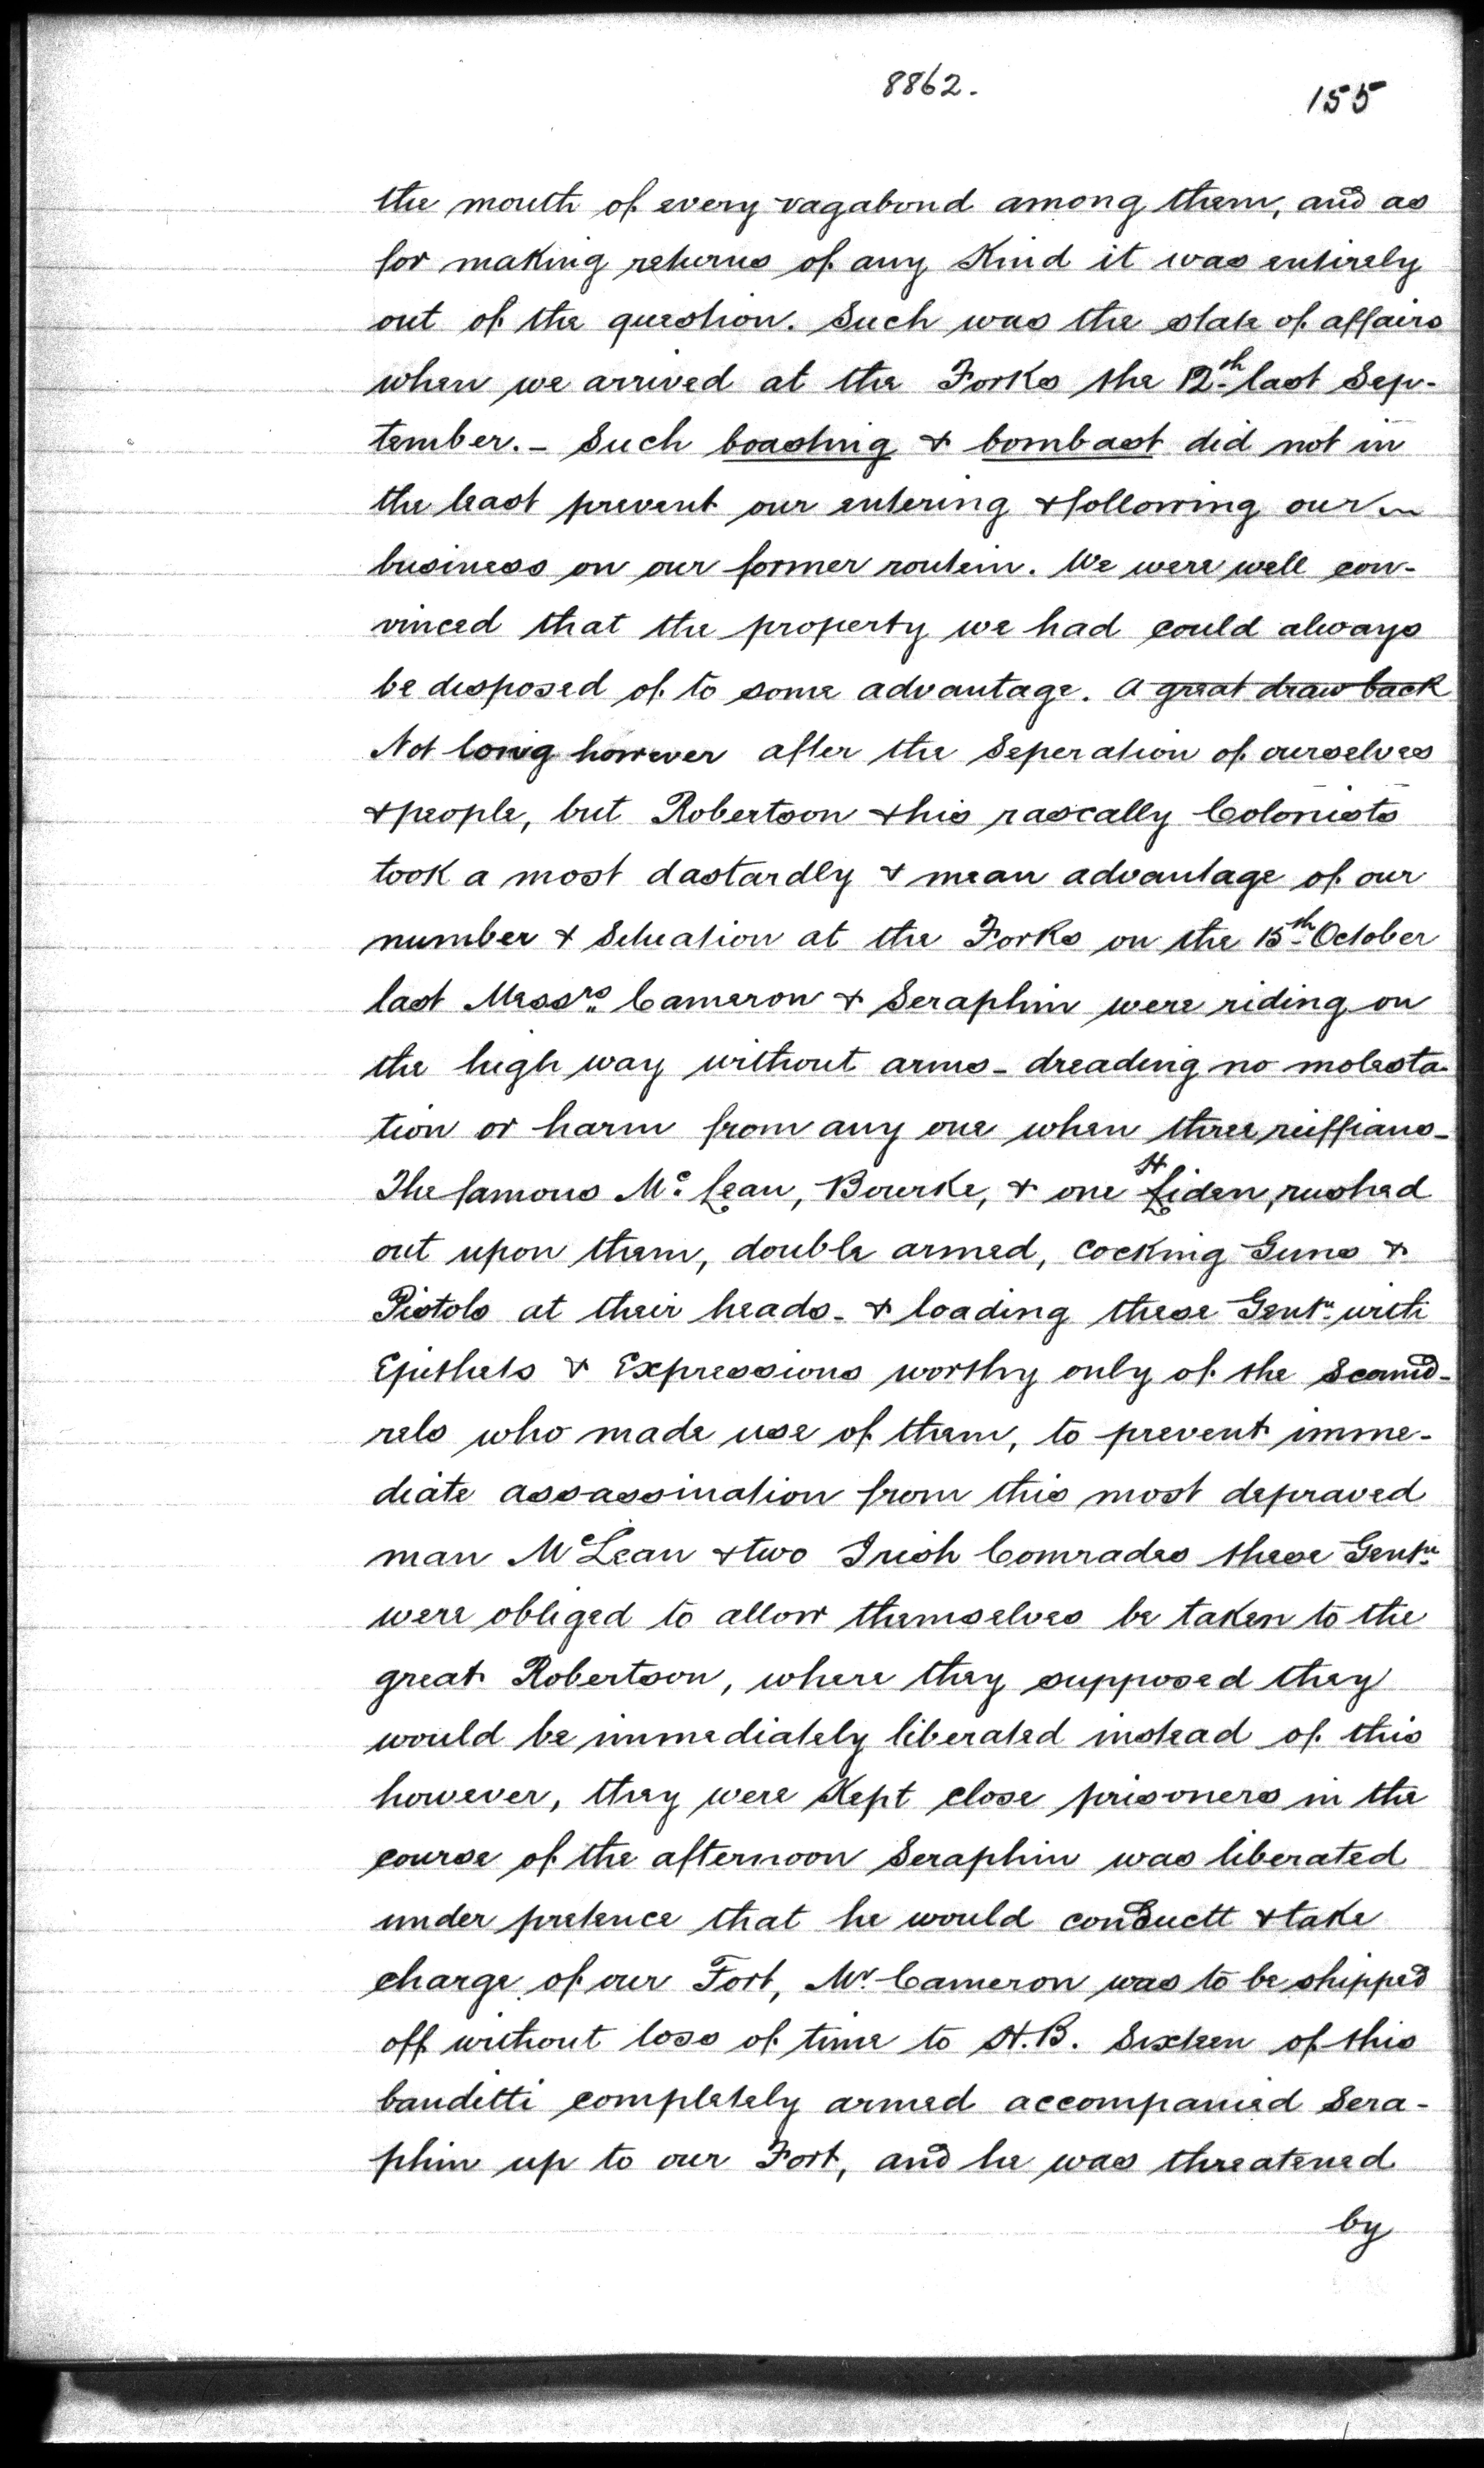 8862.
155
the mouth of every vagabond among them, and as
for making returns of any Kind it was entirely
out of the question. Such was the state of affairs
when we arrived at the Forks the 12th last Sep-
tember. - Such boasting & bombast did not in
the least prevent our entering & following our
business on our former routein. We were well con-
vinced that the property we had could always
be disposed of to some advantage. A great draw back
Not long however after the Seperation of ourselves
& people, but Robertson & his rascally Colonists
took a most dastardly & mean advantage of our
number & Situation at the Forks on the 15th October
last Messrs Cameron & Seraphin were riding on
the high way without arms - dreading no molesta-
tion or harm from any one when three ruffians -
The famous Mc Lean, Bourke, & one Hiden, rushed
out upon them, double armed, cocking Guns &
Pistols at their heads - & loading these Gentn with
Epithets & Expressions worthy only of the Scound-
rels who made use of them, to prevent imme-
diate assassination from this most depraved
man McLean & two Irish Comrades these Gentn
were obliged to allow themselves be taken to the
great Robertson, where they supposed they
would be immediately liberated instead of this
however, they were Kept close prisoners in the
course of the afternoon Seraphin was liberated
under pretence that he would conductt & take
charge of our Fort, Mr Cameron was to be shipped
off without loss of time to H.B. Sixteen of this
banditti completely armed accompanied Sera-
phin up to our Fort, and he was threatened
by